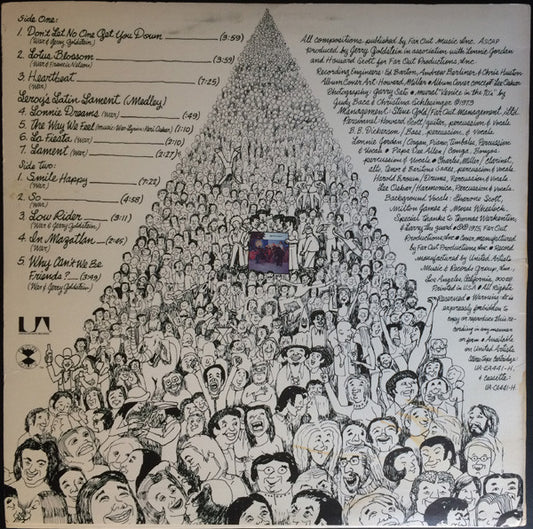 Side One:
1. Don't Let No One Get You Down (3:59)
(War & Jerry Goldstein)
2. Lotus Blossom (3:59)
(War & Francis Nelson)
3. Heartbeat (7:25)
(War)
Leroy's Latin Lament (Medley)
4. Lonnie Dreams (:49)
5. The Way We Feel (1:10)
6. La Fiesta (2:10)
7. Lament (2:27)
(War)
Side Two:
1. Smile Happy (7:22)
(War)
2. So (4:58)
(War)
3. Low Rider (3:11)
(War & Jerry Goldstein)
4. In Mazatlan (2:45)
(War)
5. Why Can't We Be
Friends? (3:49)
(War & Jerry Goldstein)
UA
All compositions published by Far Out Music, Inc. ASCAP
Produced by Jerry Goldstein in association with Lonnie Jordan
and Howard Scott for Far Out Productions, Inc.
Recording Engineers: Ed Barton, Andrew Berliner & Chris Huston
Album Cover Art: Howard Miller • Album Cover concept: Lee Oskar
Photography: Gary Sato • mural "Venice in the 70's" by
Judy Baca & Christina Schlesinger © 1973
Management: Steve Gold/Far Out Management, Ltd.
Personnel: Howard Scott/guitar, percussion & Vocals
B.B. Dickerson/Bass, percussion, & vocals
Lonnie Jordan/Organ, Piano, Timbales, Percussion
& Vocals • Papa Dee Allen/Conga, Bongos,
percussion & Vocals • Charles Miller/Clarinet,
alto, Tenor & Baritone Saxes, percussion & Vocals
Harold Brown/Drums, Percussion & Vocals
Lee Oskar/Harmonica, Percussion & Vocals
Background Vocals:
Special thanks to
& Larry the guard • 1975 Far Out
Productions, Inc • manufactured
by Far Out Productions, Inc • Record
manufactured by United Artists
Music & Records Group, Inc.,
Los Angeles, California, 90028
Printed in U.S.A • All Rights
Reserved • Warning: It is
expressly forbidden to
copy or reproduce this re-
cording in any manner
or form • Available
on United Artists
Stereo Tape Cartridge
UA-EA441-H,
& Cassette:
UA-CA441-H.